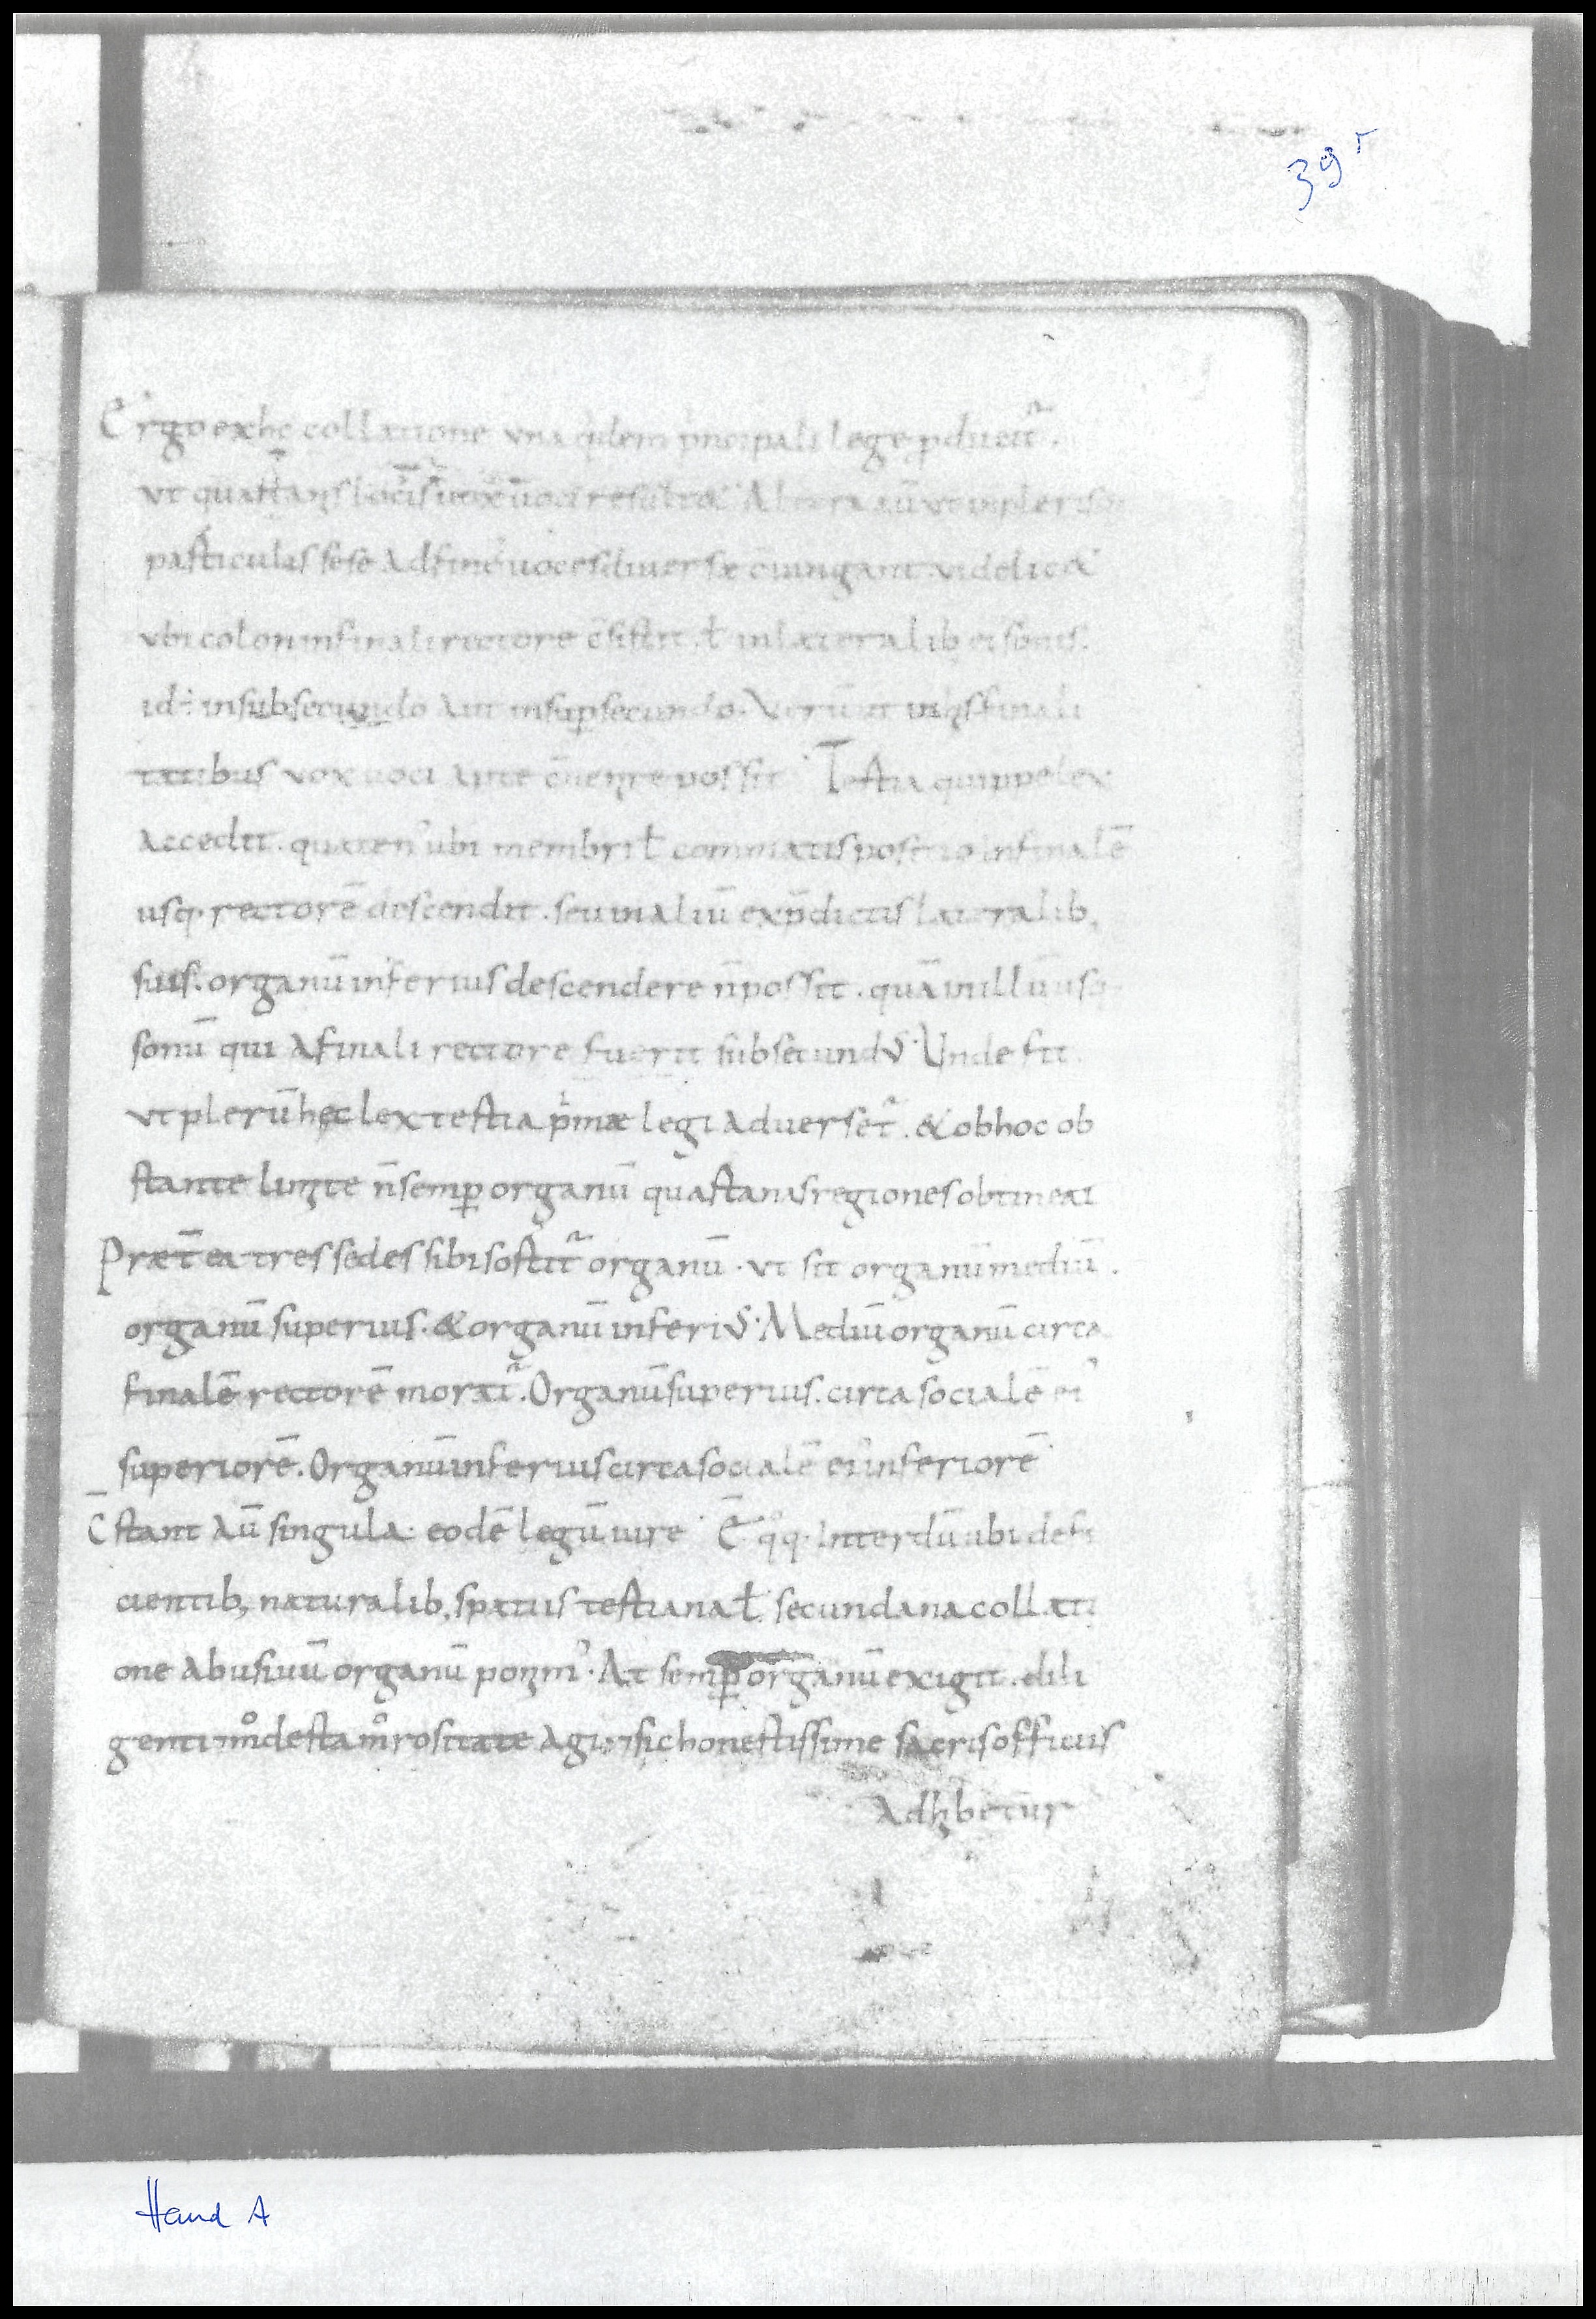 39r
Ergo ex hc̨ collatione vna qͥdem pͥncipali lege ꝑducit᷑.
vt quartanis locis uox uoci resultet Altera aū vt in pleris
particulas sese ad finē uoces diuersæ c̄iungant. videlic&
vbi colon in finali rectore c̄sistit. ƚ in lateralib; ei᾽ sonis.
id ÷ in subsecundo aut in suꝑsecundo. Verū ut in his finali
tatibus vox uoci apte c̄uenire possit Tertia quippe lex
accedit. quaten᾽ ubi membri ƚ commatis positio in finalē
usq; rectorē descendit. seu in aliū ex p̄dictis lateralib;
suis. organū inferius descendere n̄ possit. quā in illū usq;
sonū qui a finali rectore fuerit subsecundus. Unde fit.
vt plerū hęc lex tertia pͥmæ legi aduerset᷑. & ob hoc ob
stante limite n̄ semꝑ organū quartanas regiones obtineat
Præt̄ea tres sedes sibi sortit᷑ organū. vt sit organū mediū.
organū superius. & organū inferius. Mediū organū circa
finalē rectorē morat᷑. Organū superius. circa socialē ei᾽
superiorē. Organū inferius circa socialē ei᾽ inferiorē
C̄stant aū singula eodē legū iure Ē qͦq; Interdū ubi defi
cientib; naturalib; spatiis tertiana ƚ secundana collati
one abusiuū organū ponim᾽. At semꝑ organū exigit. dili
genti mͦdesta mͦrositate agi. sic honestissime sacris officiis
Adhibetur
Hand A